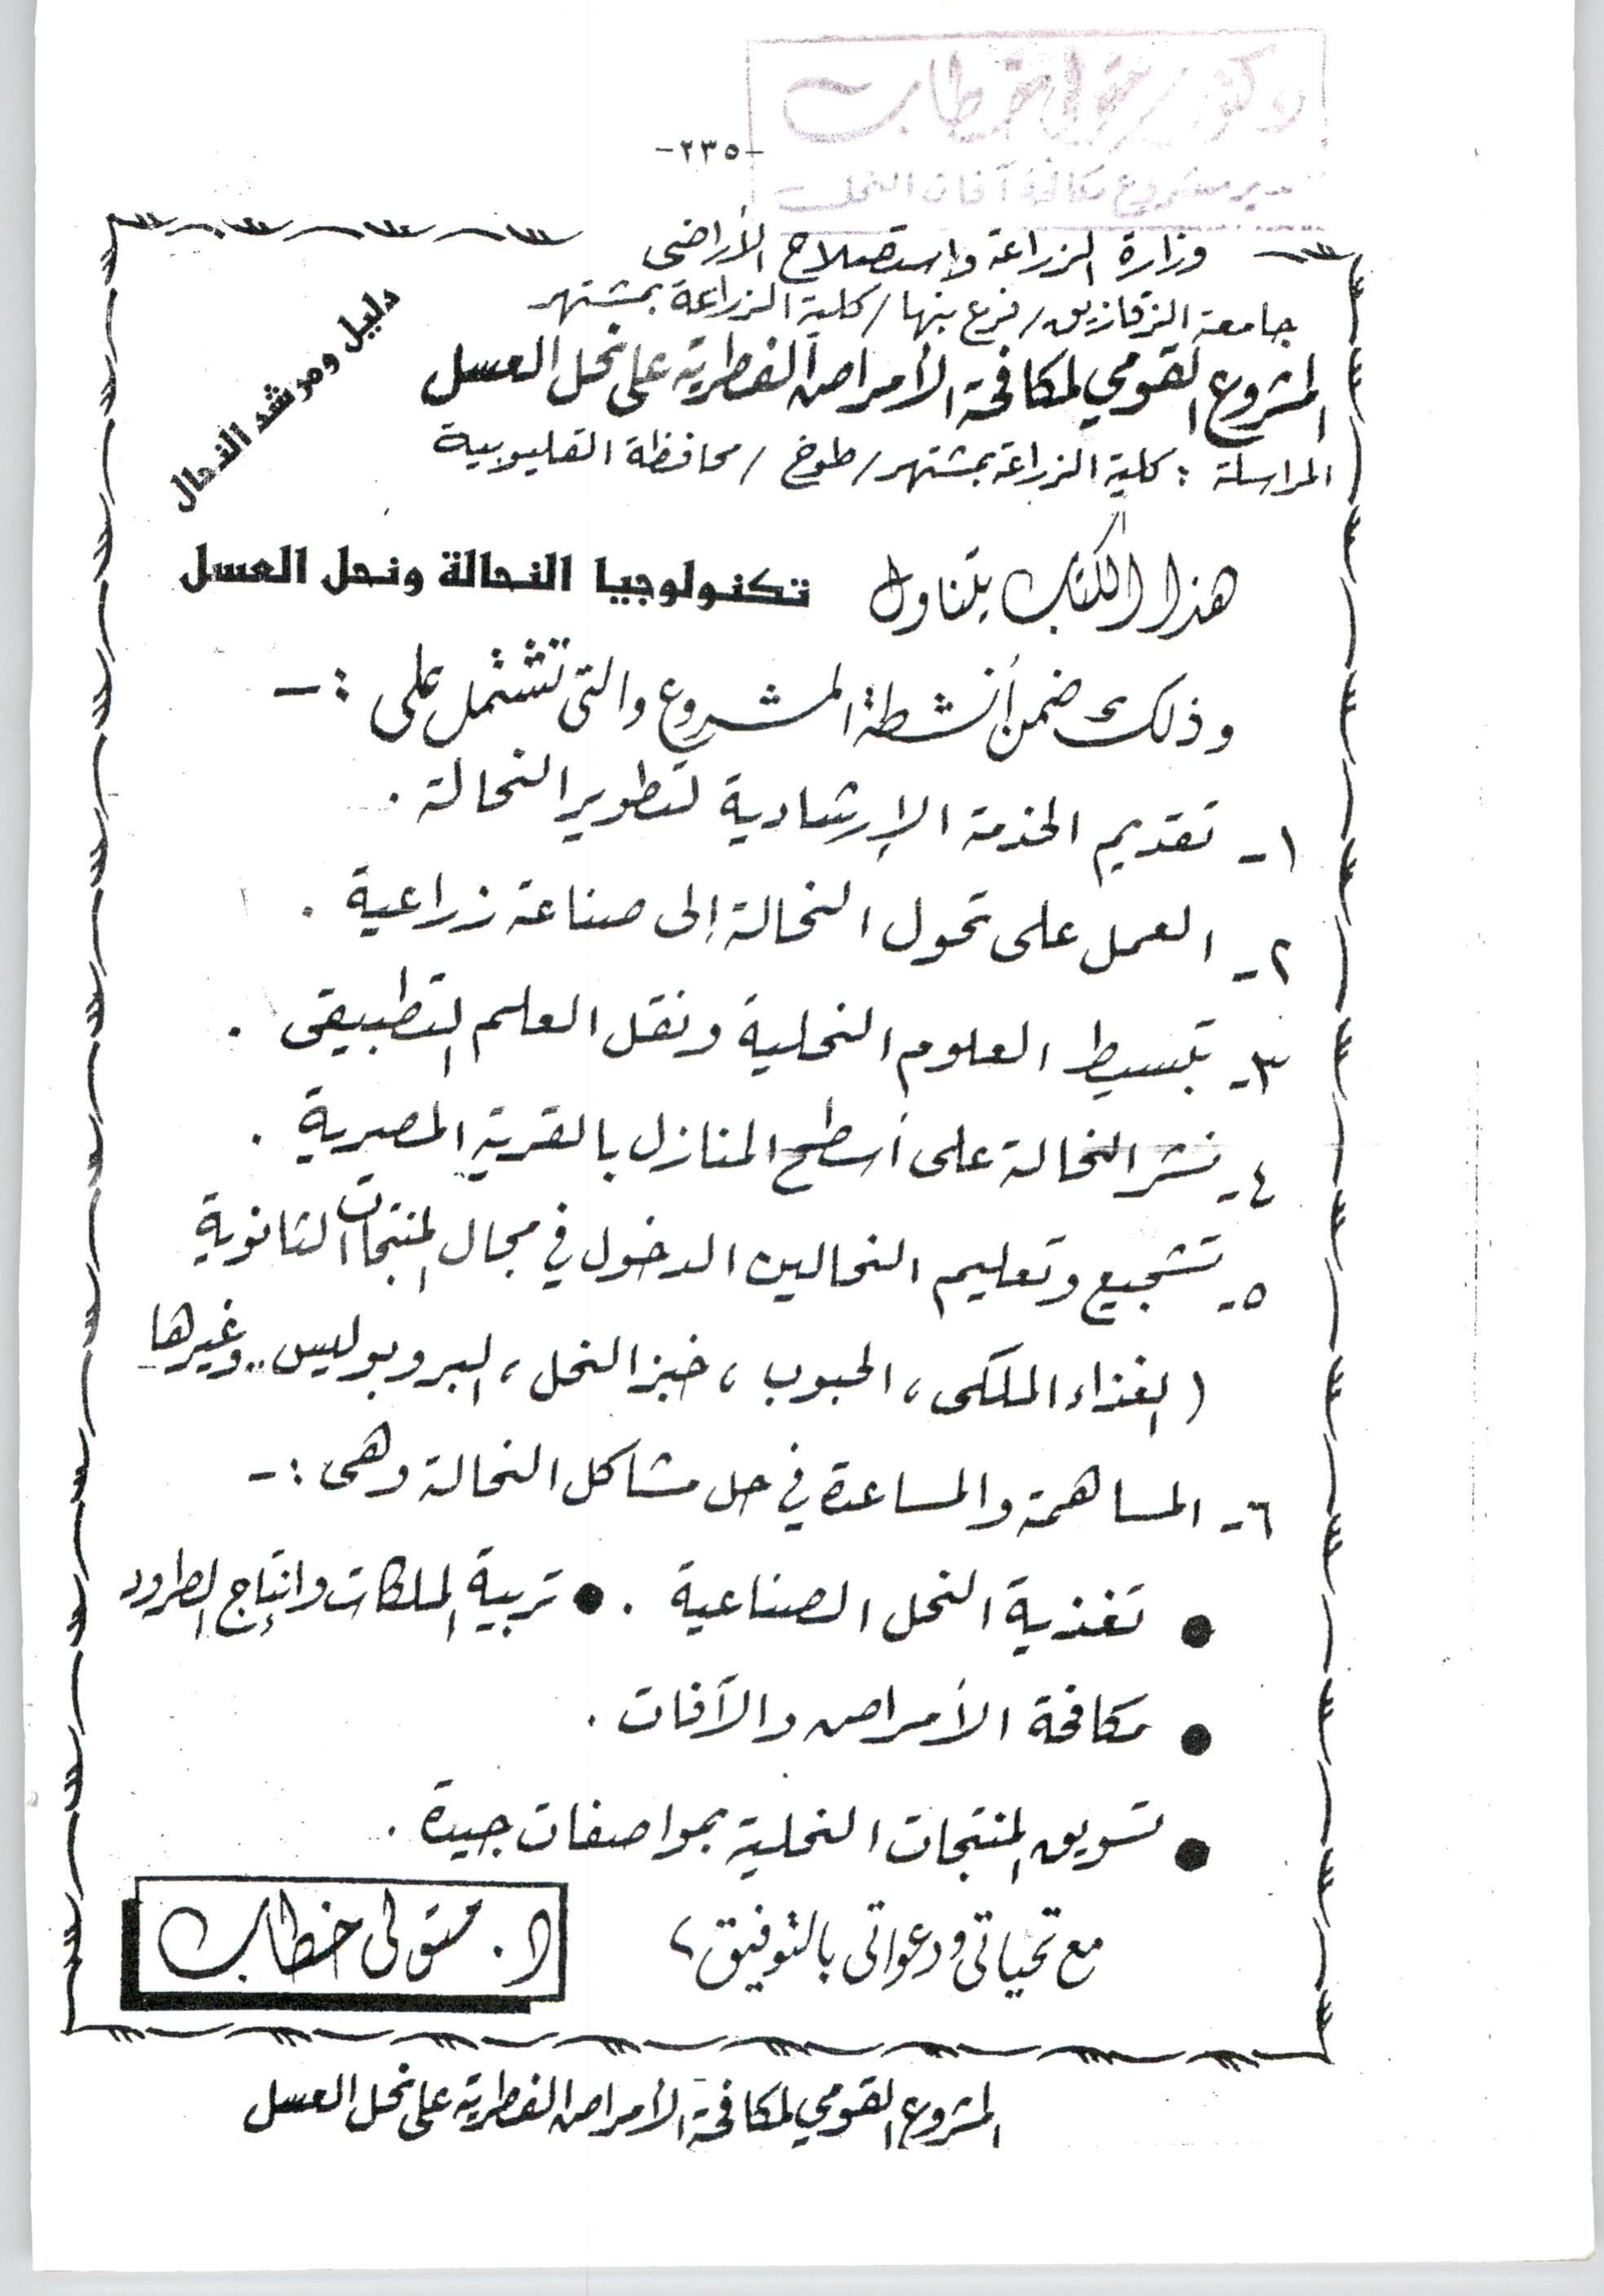 دكتور/ متولى خطاب
مدير مشروع مكافحة آفات النحل
-٢٣٥-
وزارة الزراعة واستصلاح الأراضى
جامعة الزقازيق/ فرع بنها/ كلية الزراعة بمشتهر
المشروع القومي لمكافحة الأمراض الفطرية على نحل العسل
المراسلة : كلية الزراعة بمشتهر/ طوخ / محافظة القليوبية
دليل ومرشد النحال
هذا الكتاب يتناول تكنولوجيا النحالة ونحل العسل
وذلك ضمن أنشطة المشروع والتى تشتمل على :-
١- تقديم الخدمة الإرشادية لتطوير النحالة .
٢- العمل على تحول النحالة إلى صناعة زراعية .
٣- تبسيط العلوم النحلية ونقل العلم التطبيقى .
٤- نشر النحالة على أسطح المنازل بالقرية المصرية .
٥- تشجيع وتعليم النحالين الدخول في مجال المنتجات الثانوية
( الغذاء الملكى ، الحبوب ، خبز النحل ، البروبوليس .. وغيرها
٦- المساهمة والمساعدة في حل مشاكل النحالة وهى :-
● تغذية النحل الصناعية . ● تربية الملكات وإنتاج الطرود
● مكافحة الأمراض والآفات .
● تسويق المنتجات النحلية بمواصفات جيدة .
مع تحياتى ودعواتى بالتوفيق ،
د. متولى خطاب
المشروع القومي لمكافحة الأمراض الفطرية على نحل العسل